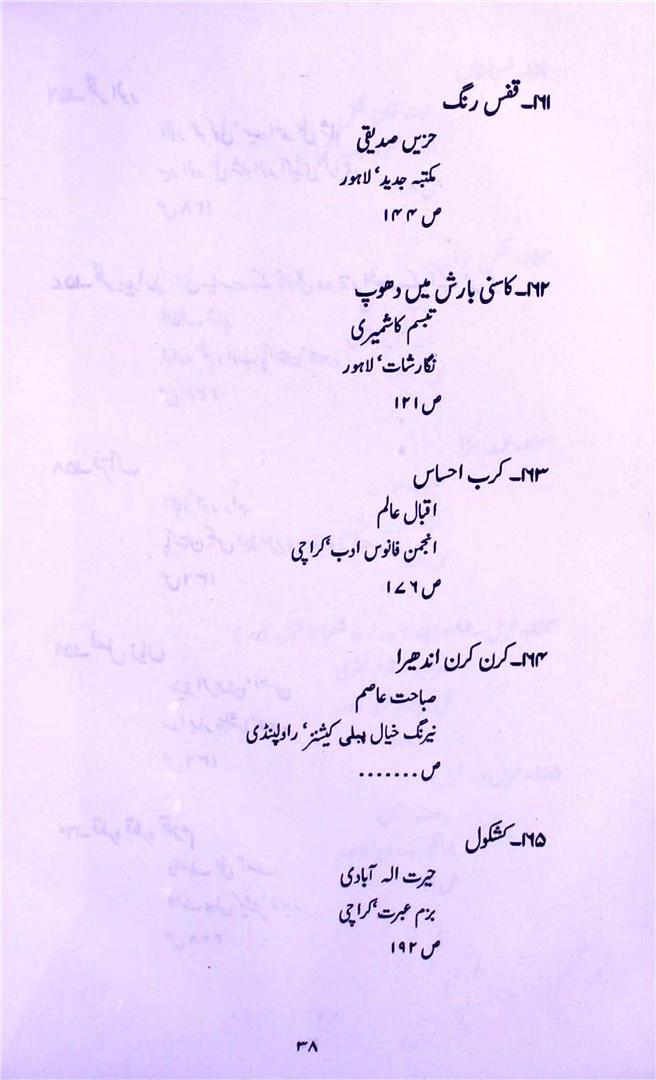 ۱۶۱۔ قفس رنگ
حزیں صدیقی
مکتبہ جدید، لاہور
ص ۱۴۴
۱۶۲۔ کاسنی بارش میں دھوپ
تبسم کاشمیری
نگارشات، لاہور
ص ۱۲۱
۱۶۳۔ کرب احساس
اقبال عالم
انجمن فانوس ادب، کراچی
ص ۱۷۶
۱۶۴۔ کرن کرن اندھیرا
صباحت عاصم
نیرنگ خیال پبلی کیشنز، راولپنڈی
ص .......
۱۶۵۔ کشکول
حیرت الہ آبادی
بزم عبرت، کراچی
ص ۱۹۲
۳۸